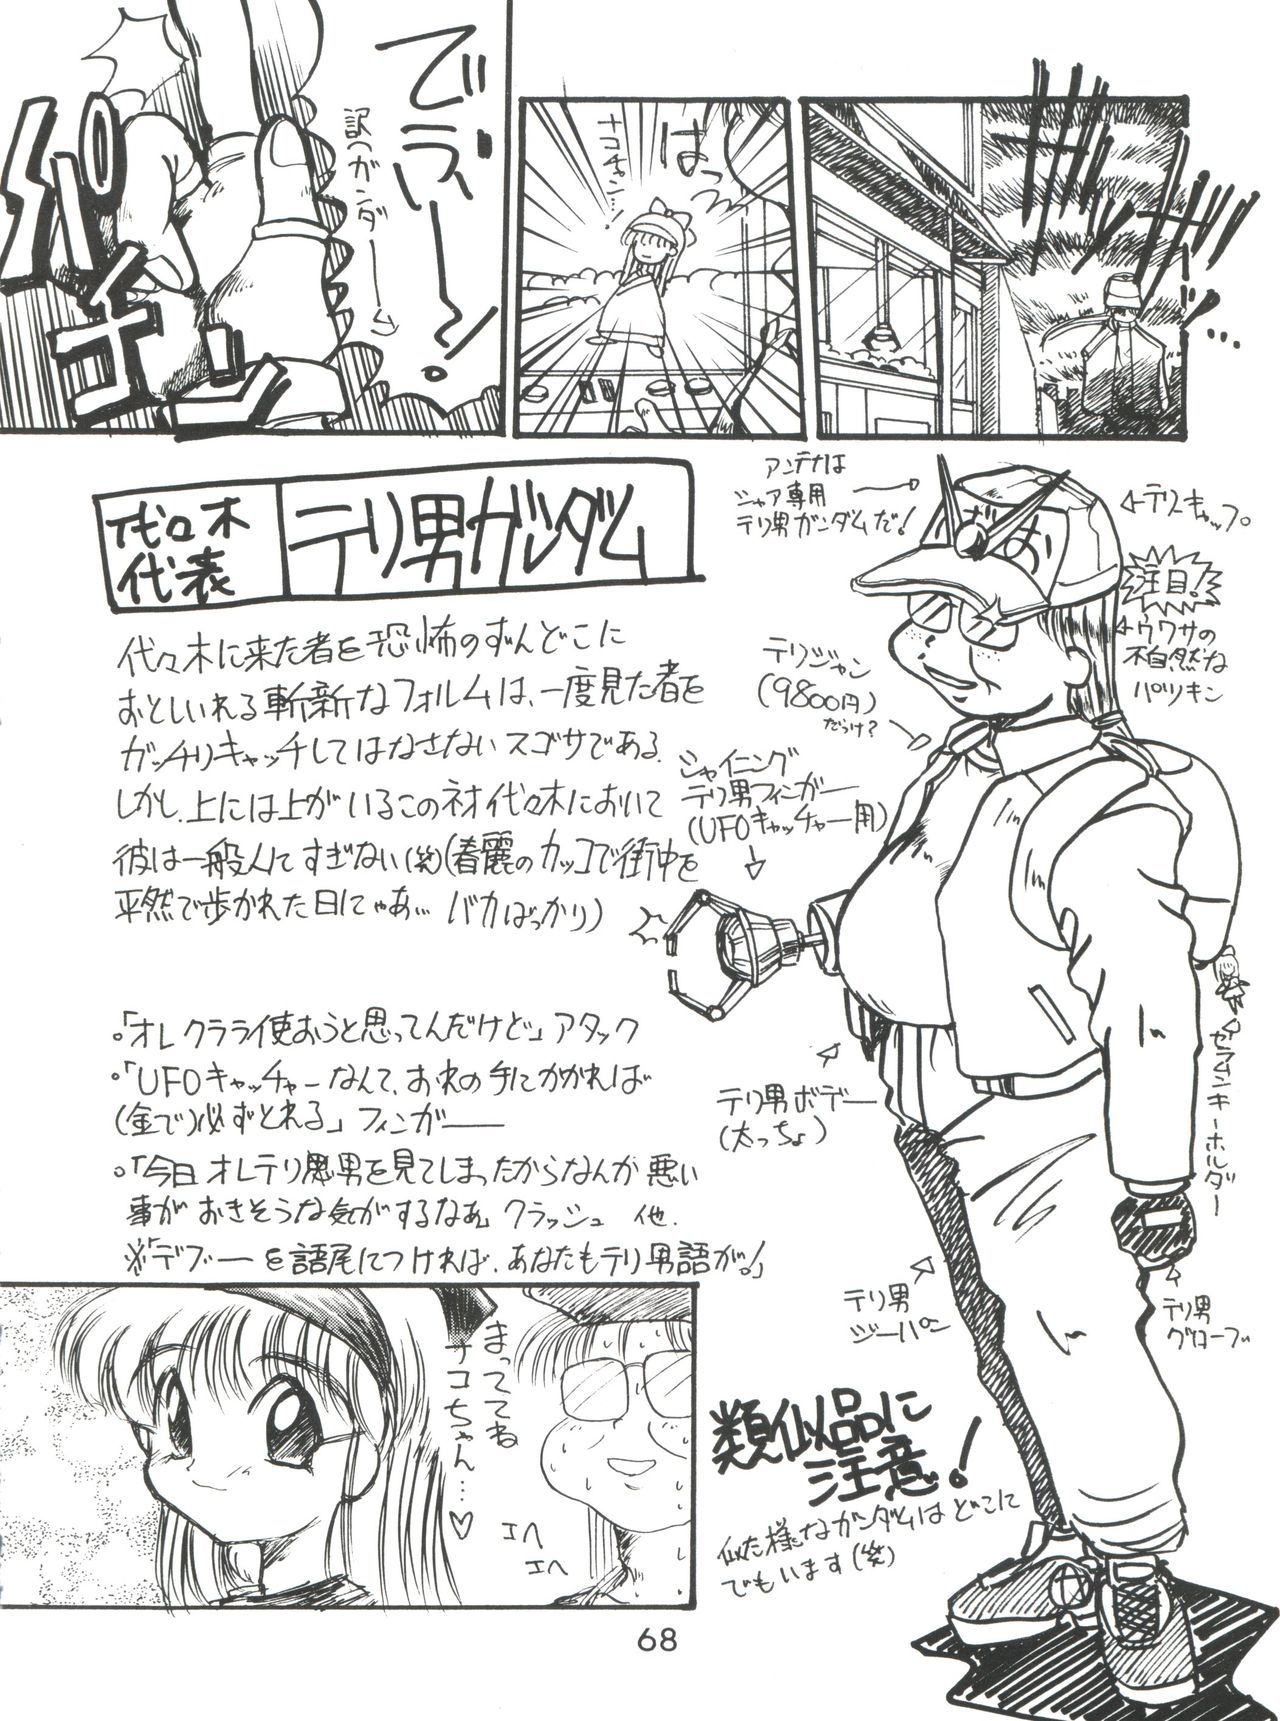 ザッ…
はっ
ナコチャン…!
でラ〜〜!
訳→ガンダー
パチン
代々木
代表
テリ男ガンダム
代々木に来た者を恐怖のずんどこに
おとしいれる斬新なフォルムは、一度見た者を
ガッチリキャッチしてはなさないスゴサである.
しかし、上には上がいるこのネオ代々木において
彼は一般人てすぎない(笑)(春麗のカッコで街中を
平然で歩かれた日にゃあ… バカばっかり)
。「オレクラライ使おうと思ってんだけど」アタック
。「UFOキャッチャーなんて、おれの手にかかれば
(金で)必ずとれる」フィンガー
。「今日オレテリ男を見てしまったからなんか悪い
事がおきそうな気がするなぁ」クラッシュ 他.
※「デブーを語尾につければ、あなたもテリ男語が。」
アンテナは
シャア専用
テリ男ガンダムだ!
←テリキャップ
注目!
←ウワサの
不自然な
パツキン
テリジャン
(9800円)
だらけ?
シャイニング
テリ男フィンガー
(UFOキャッチャー用)
テリ男ボデー
(太っちょ)
セラムンキーホルダー
テリ男
ジーパン
テリ男
グローブ
類似品に
注意!
似た様なガンダムはどこに
でもいます(笑)
まっててね
ナコちゃん…♡
エヘ
エヘ
68